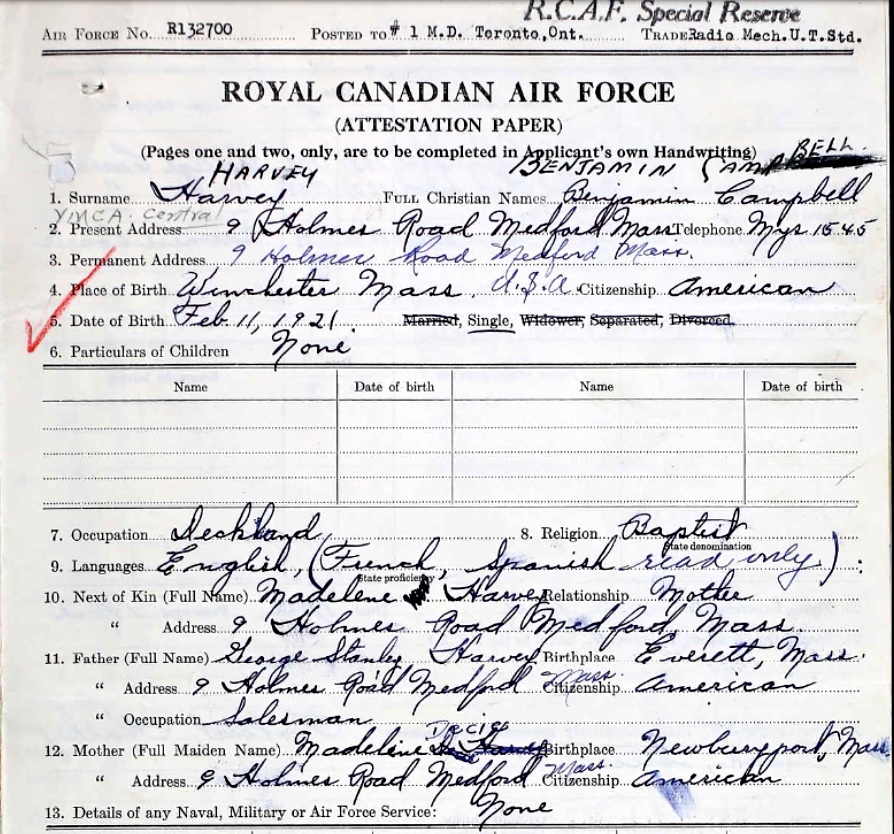 R.C.A.F. Special Reserve
AIR FORCE NO. R132700 POSTED TO # 1 M.D. Toronto, Ont. TRADE Radio Mech.U.T.Std.
ROYAL CANADIAN AIR FORCE
(ATTESTATION PAPER)
(Pages one and two, only, are to be completed in Applicant's own Handwriting)
HARVEY BENJAMIN CAMPBELL
1. Surname Harvey FULL Christian Names Benjamin Campbell
YMCA. Central
2. Present Address 9 Holmes Road Medford Mass Telephone Mys 1545
3. Permanent Address 9 Holmes Road Medford Mass.
4. Place of Birth Winchester Mass. U.S.A. Citizenship American
5. Date of Birth Feb. 11, 1921. Married, Single, Widower, Separated, Divorced
6. Particulars of Children None
Name Date of birth Name Date of birth
7. Occupation Deckhand 8. Religion Baptist
State denomination
9. Languages English, (French, Spanish read only)
State proficiency
10. Next of Kin (Full Name) Madelene Harvey Relationship Mother
" Address 9 Holmes Road Medford, Mass
11. Father (Full Name) George Stanley Harvey Birthplace Everett, Mass.
" Address 9 Holmes Road Medford Mass. Citizenship American
" Occupation Salesman
12. Mother (Full Maiden Name) Madeline Birthplace Newburyport, Mass.
" Address 9 Holmes Road Medford Mass. Citizenship American
13. Details of any Naval, Military or Air Force Service: None